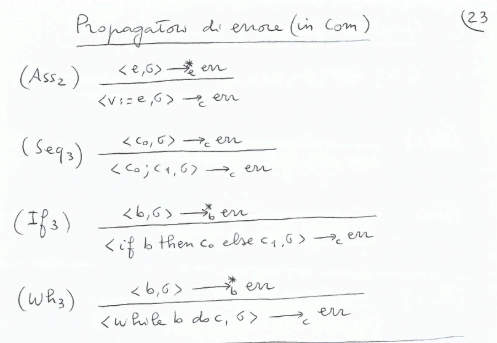 Propagatori di errore (in Com) (23
(Ass₂) <e,σ> →*ₑ err
<v:=e,σ> →c err
(Seq₃) <c₀,σ> →c err
<c₀;c₁,σ> →c err
(If₃) <b,σ> →*b err
<if b then c₀ else c₁,σ> →c err
(Wh₃) <b,σ> →*b err
<while b do c,σ> →c err